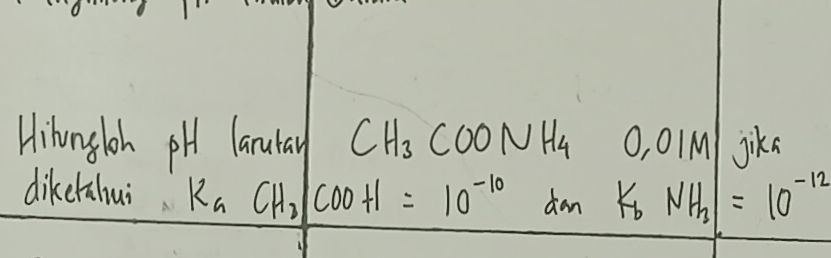 Hitunglah pH larutan CH₃COONH₄ 0,01M jika
diketahui Ka CH₃COOH = 10⁻¹⁰ dan Kb NH₃ = 10⁻¹²